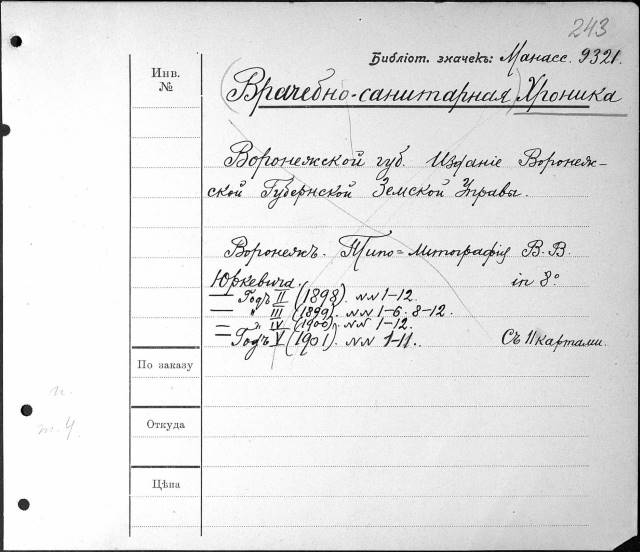 243
Библіот. значекъ: Манасс. 9321.
Инв.
№
(Врачебно-санитарная) Хроника
Воронежской губ. Изданіе Воронеж-
ской Губернской Земской Управы.
Воронежъ. Типо=Литографія В. В.
Юркевича. in 8°
— Годъ II (1898). NN 1-12.
— " III (1899). NN 1-6. 8-12.
— " IV (1900). NN 1-12.
— Годъ V (1901). NN 1-11. Съ 11 картами.
По заказу
Откуда
Цѣна